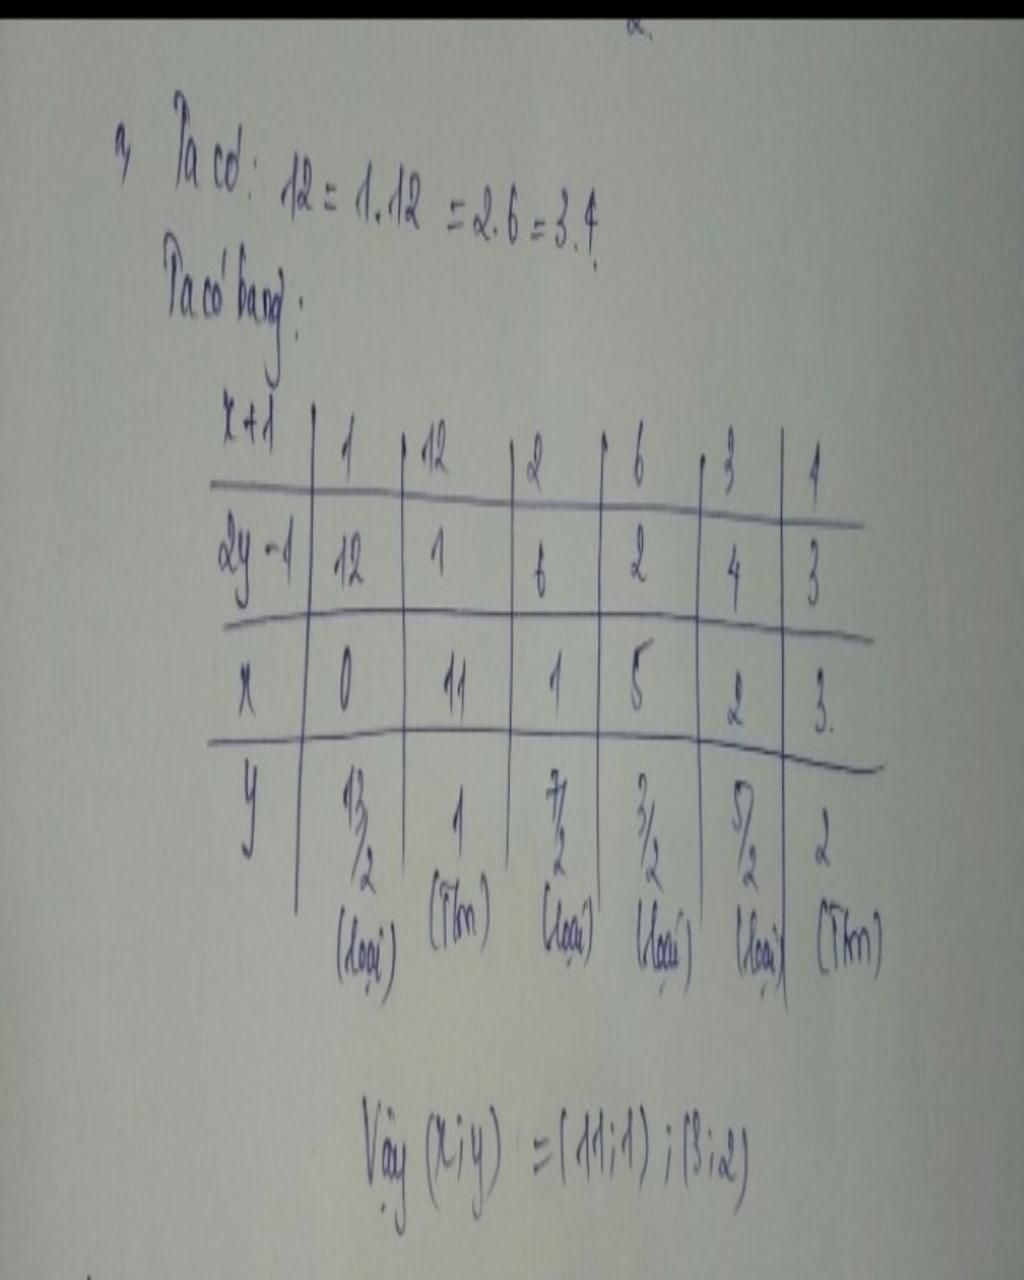 a, Ta có: 12 = 1.12 = 2.6 = 3.4
Ta có bảng:
x+1 1 12 2 6 3 4
2y-1 12 1 6 2 4 3
x 0 11 1 5 2 3
y 13/2 1 7/2 3/2 5/2 2
(loại) (Tm) (loại) (loại) (loại) (Tm)
Vậy (x;y) = (11;1) ; (3;2)